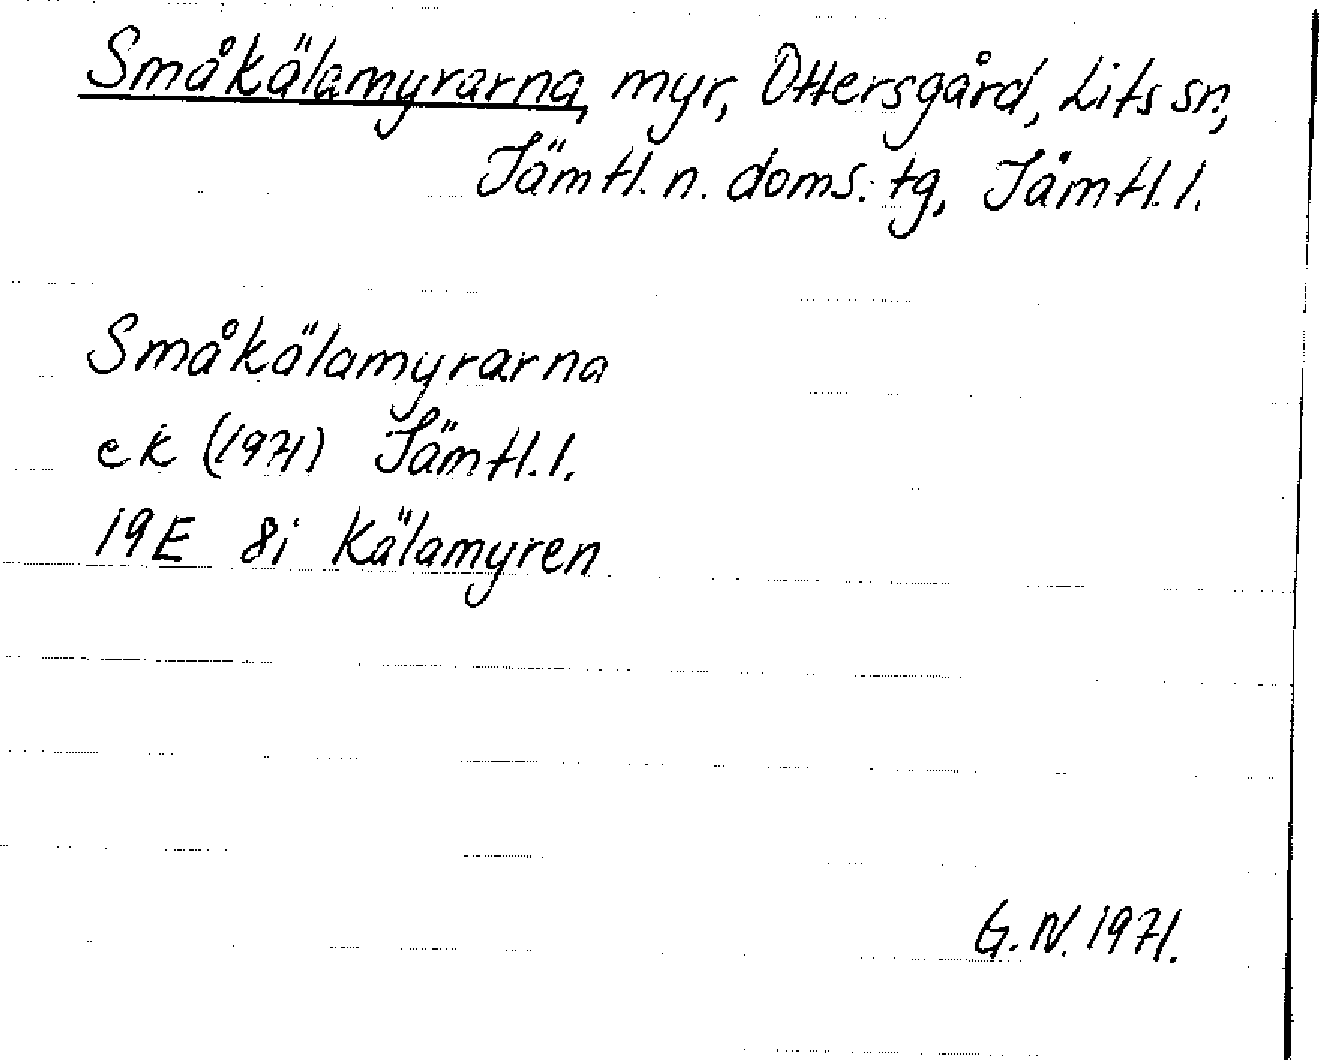 Småkälamyrarna, myr, Ottersgård, Lits sn,
Jämtl. n. doms. tg, Jämtl. l.
Småkälamyrarna
ek (1971) Jämtl. l.
19E 8i Kälamyren
G. N. 1971.